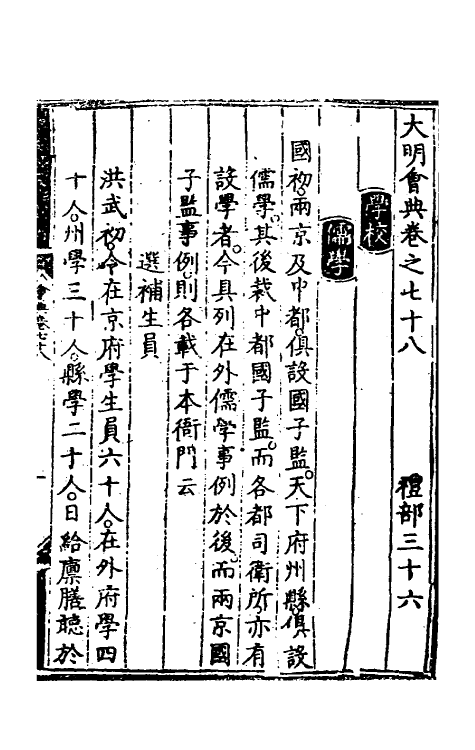 大明會典卷之七十八　禮部三十六
學校
儒學
國初。兩京及中都。俱設國子監。天下府州縣。俱設
儒學。其後裁中都國子監。而各都司衛所。亦有
設學者。今具列在外儒學事例於後。而兩京國
子監事例。則各載于本衙門云
選補生員
洪武初。令在京府學生員六十人。在外府學四
十人。州學三十人。縣學二十人。日給廩膳。聽於